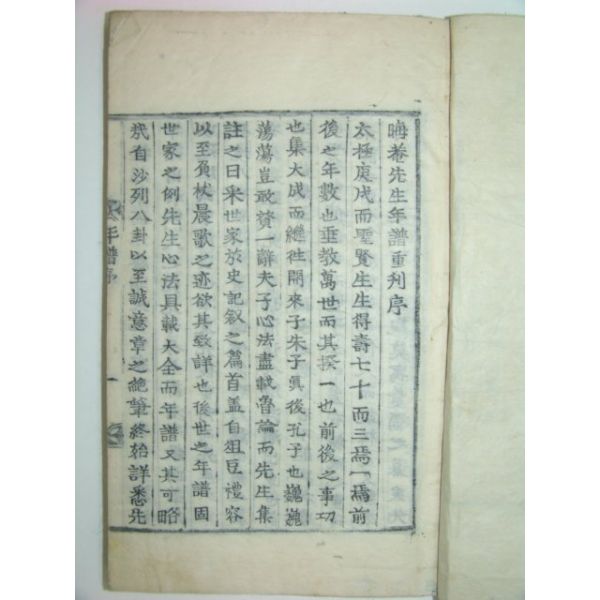 晦菴先生年譜重刊序
太極庚戌而聖賢生生得壽七十而三焉一焉前
後之年數也垂敎萬世而其揆一也前後之事功
也集大成而繼徃開來子朱子眞後孔子也巍巍
蕩蕩豈敢贊一辭夫子心法盡載魯論而先生集
註之曰采世家於史記叙之篇首盖自俎豆禮容
以至負杖晨歌之迹欲其致詳也後世之年譜固
世家之例先生心法具載大全而年譜又其可略
㢤自沙列八卦以至誠意章之絶筆終始詳悉先
年譜序
一